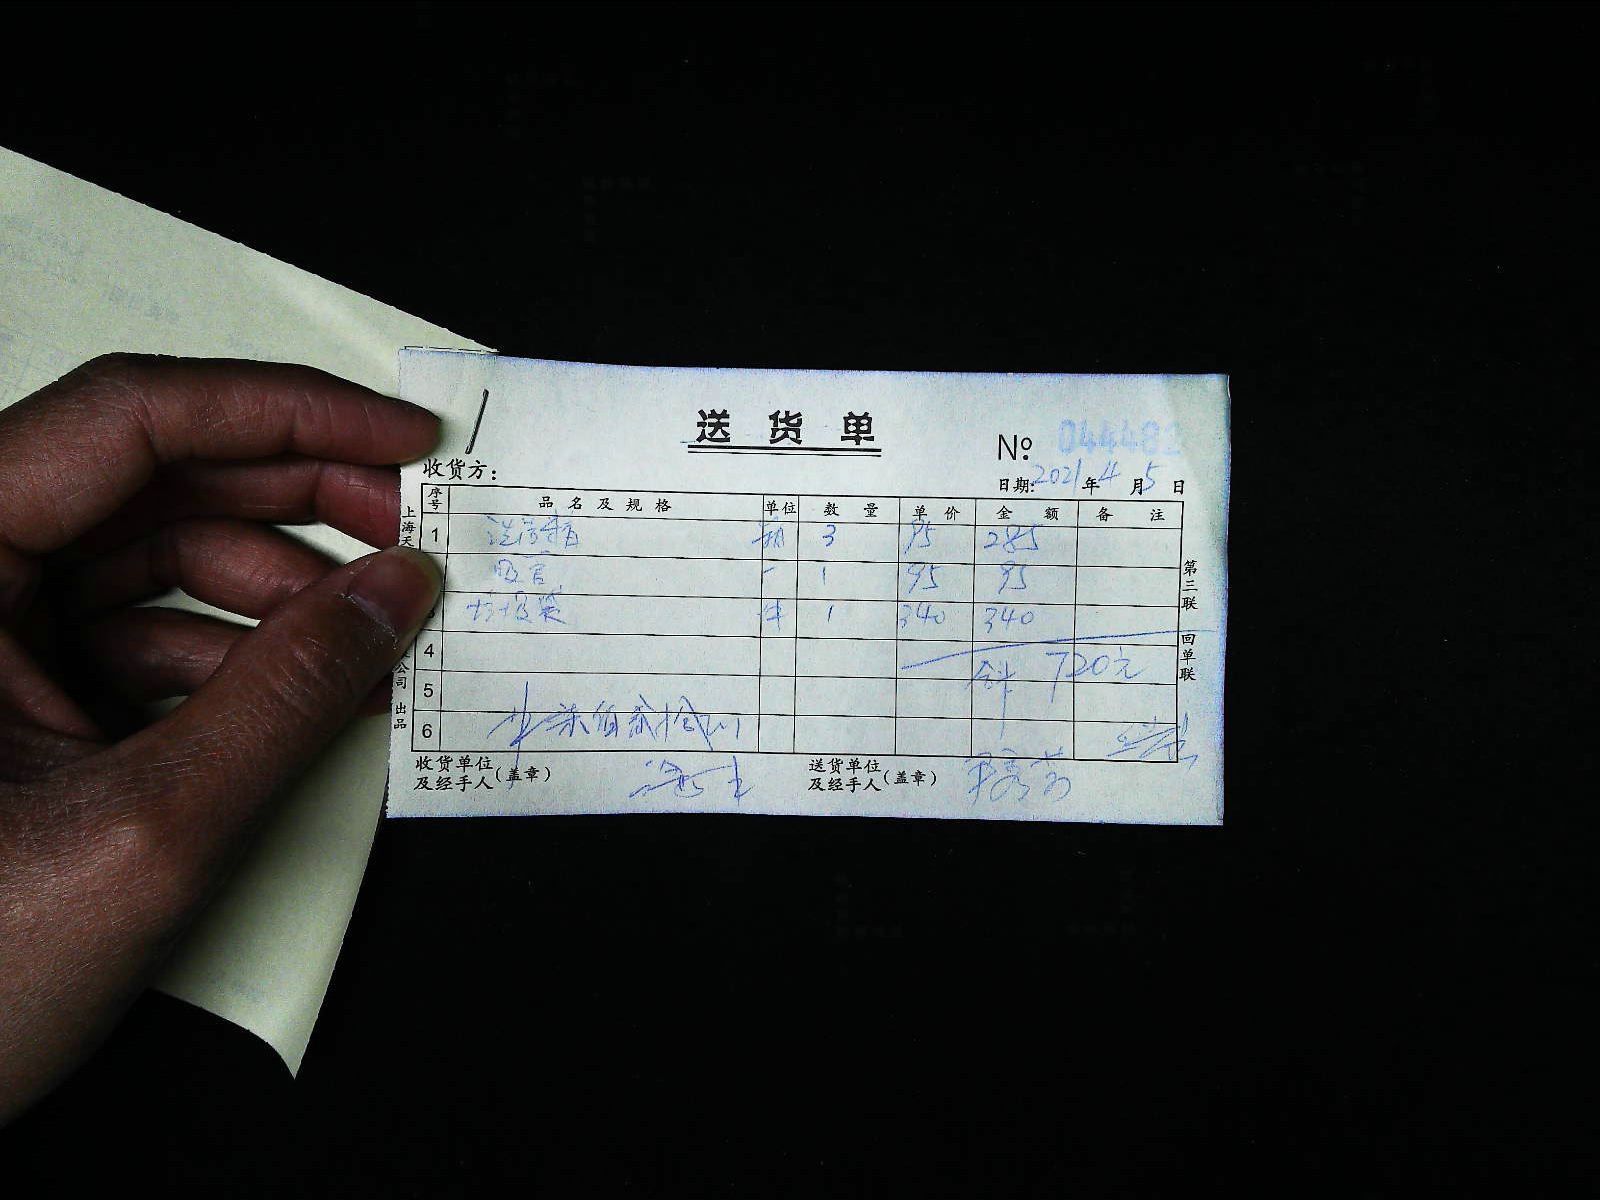 送货单
№ 044482
收货方：
日期：2021年4月5日
序号 品名及规格 单位 数量 单价 金额 备注
1 洗洁精 3 95 285
吸管 1 95 95
垃圾袋 件 1 340 340
4
合计 720元
5
6 柒佰贰拾
收货单位及经手人（盖章）
送货单位及经手人（盖章）
上海天
公司 出品
第三联 回单联